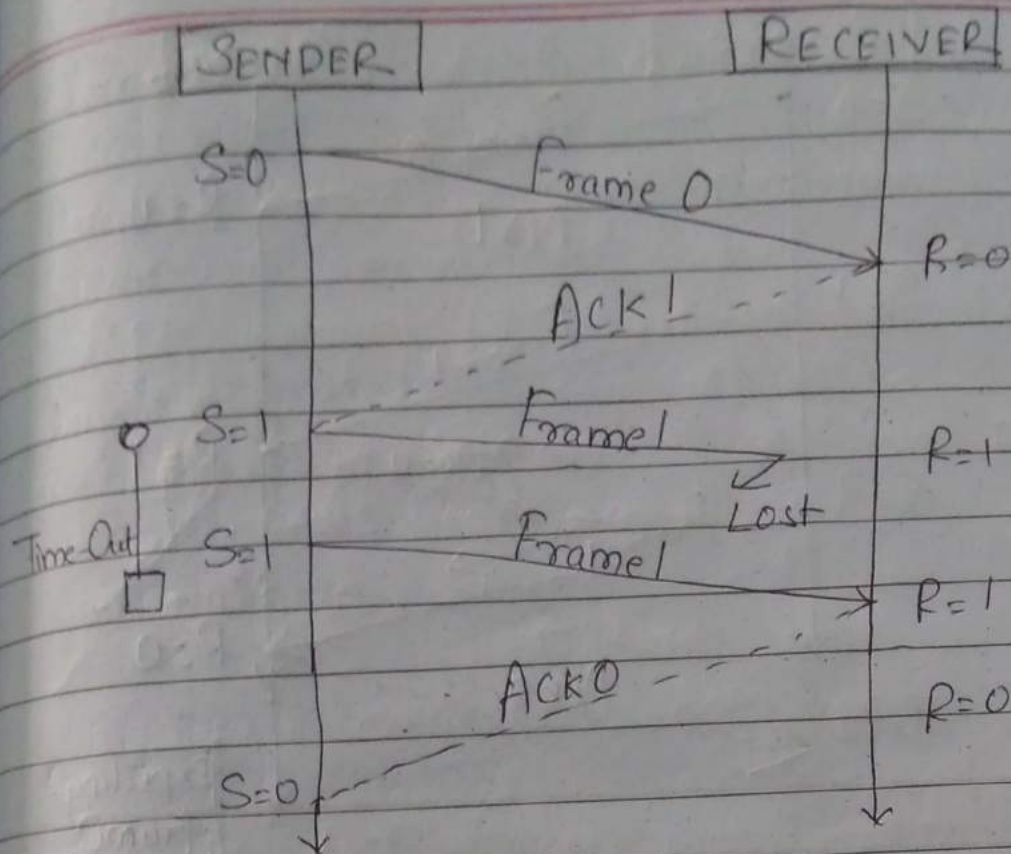 SENDER RECEIVER
S=0 Frame 0
R=0
ACK 1
S=1 Frame 1
R=1
Lost
Time-Out S=1 Frame 1
R=1
ACK 0
R=0
S=0